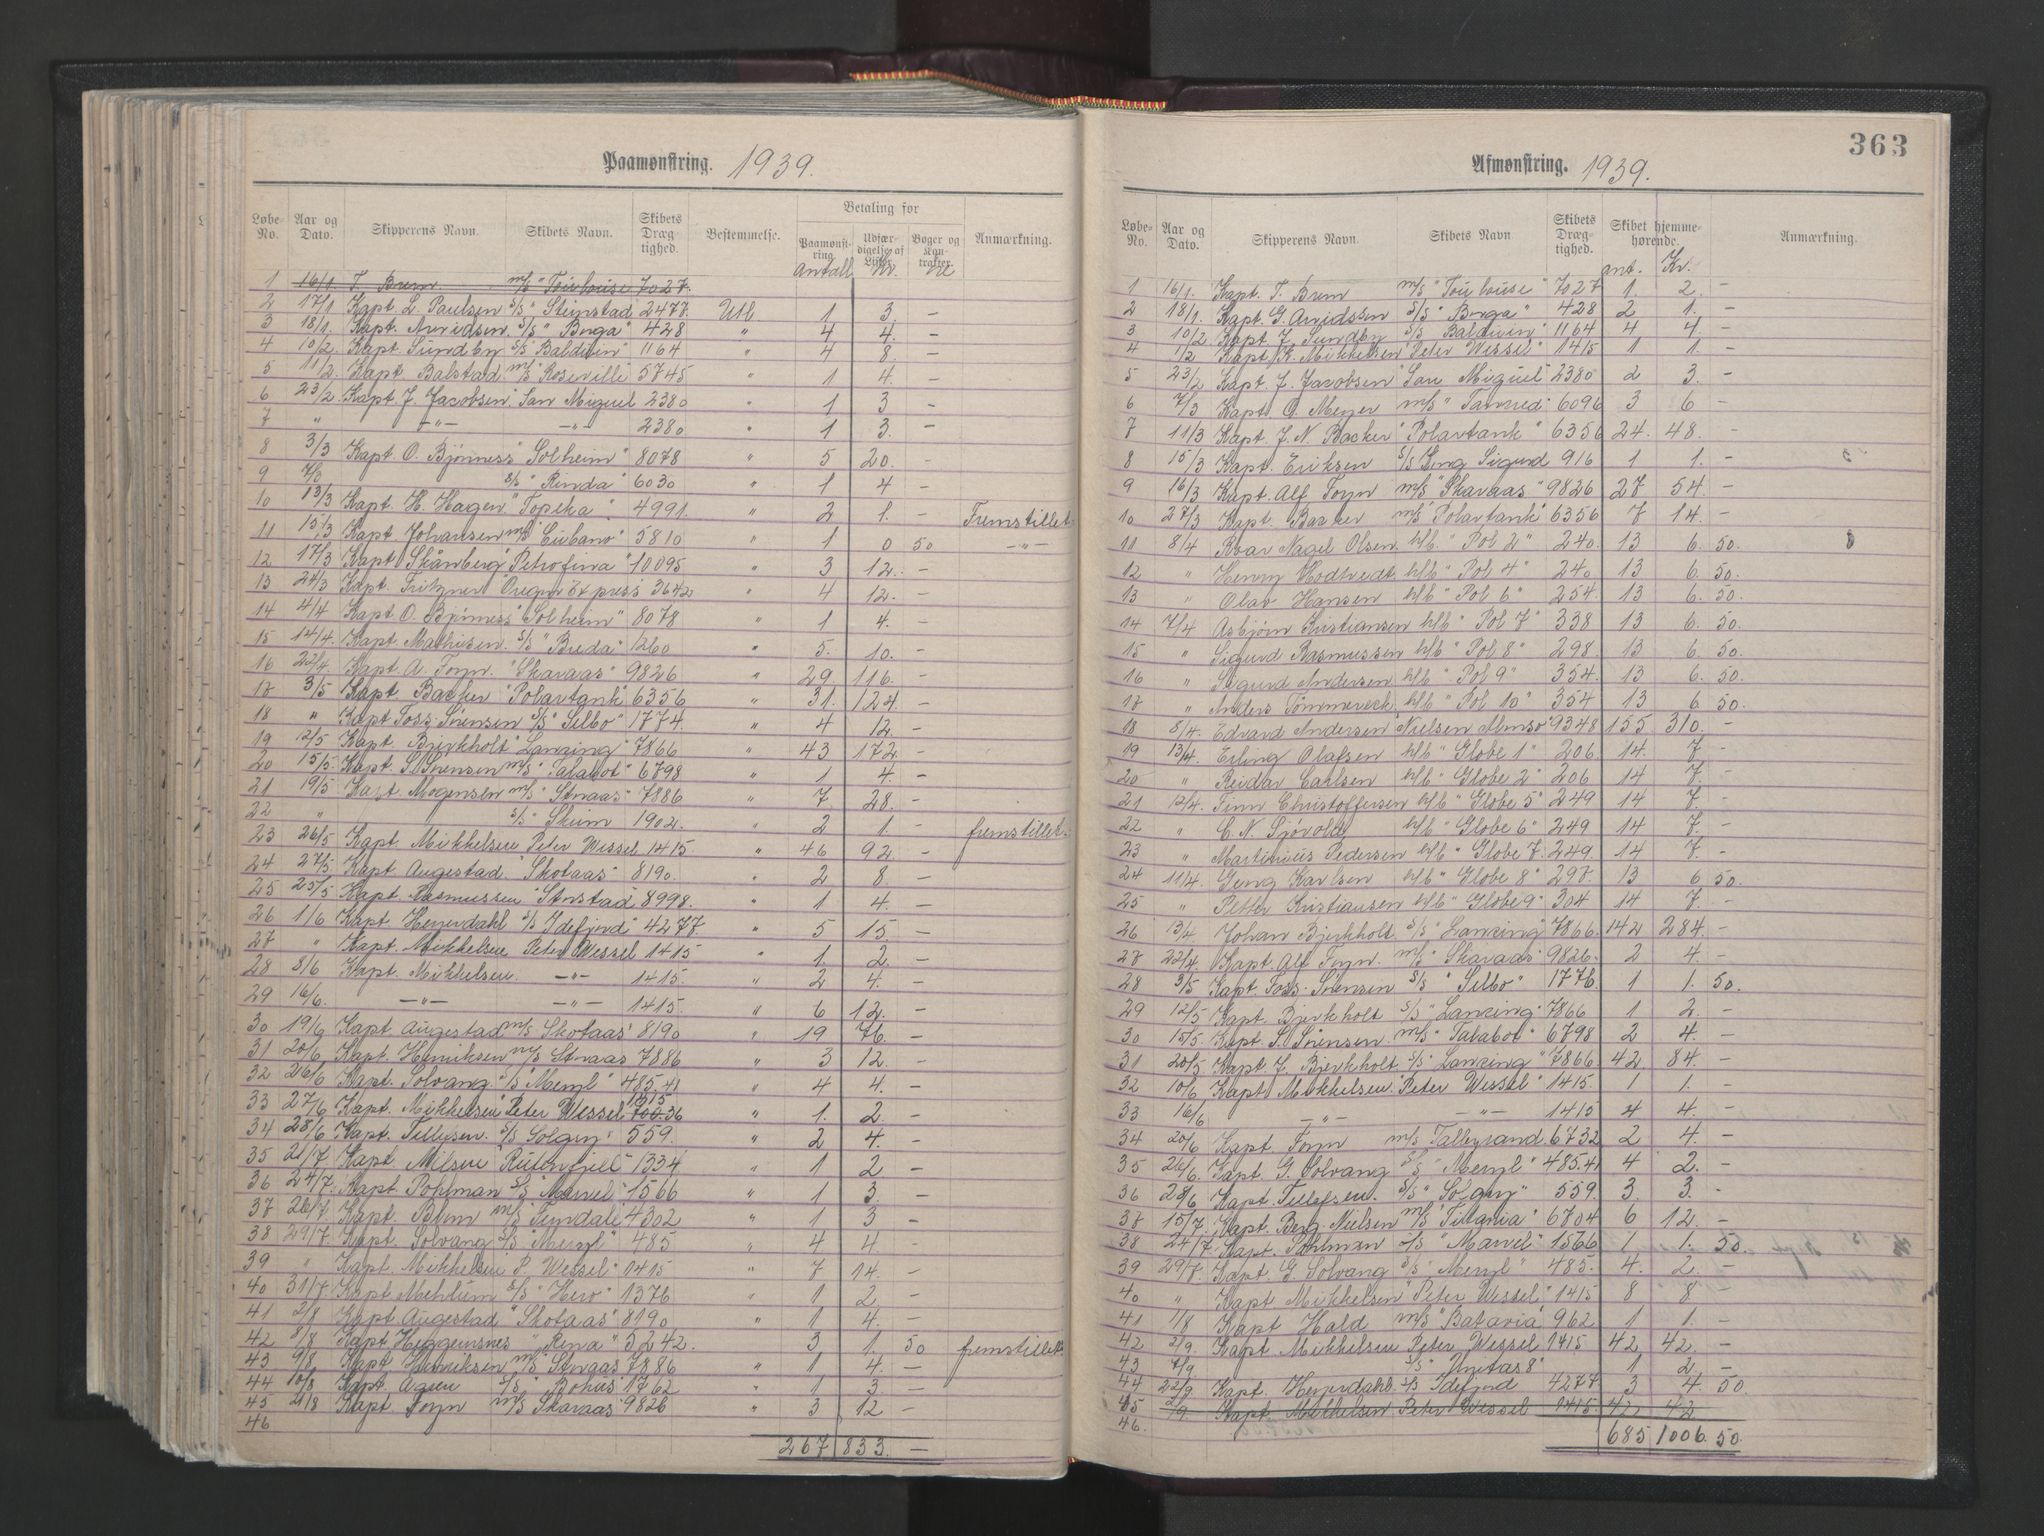 Paamønstring. 1939.
Løbe-No. Aar og Dato. Skipperens Navn. Skibets Navn. Skibets Drægtighed. Bestemmelse. Betaling for Paamønstring Udfærdigelse af Lister Bøger og Kontrakter. Anmærkning.
Antall Kr.
1 16/1 T. Brun m/s "Toulouse 7027.
2 17/1 Kapt. L. Paulsen s/s "Steinstad 2477. Utl. 1 3. –
3 18/1. Kapt. Arvidsen. s/s "Borga" 428 " 4 4. –
4 10/2. Kapt. Sundby s/s "Baldwin" 1164 " 4 8. –
5 11/2. Kapt. Balstad m/s "Roseville 5745 " 1 4. –
6 23/2. Kapt. J. Jacobsen. "San Miguel 2380 " 1 3 –
7 " –"– –"– 2380 " 1 3. –
8 3/3 Kapt. O. Bjønness "Solheim" 8078 " 5 20. –
9 7/3 s/s "Rinda" 6030 " 1 4 –
10 13/3 Kapt. H. Hagen "Topeka" 4991. " 2 1. – Fremstillet
11 15/3 Kapt. Johansen m/s "Cubano" 5810 " 1 0 50 –"–
12 17/3 Kapt. Skånberg "Petrofina" 10095 " 3 12. –
13 24/3 Kapt. Fritzner "Oregon Express 3642 " 4 12. –
14 4/4 Kapt. O. Bjønness "Solheim" 8078 " 1 4. –
15 14/4. Kapt. Mathisen. s/s "Breda" 1260 " 5. 10. –
16 22/4 Kapt. A. Foyn. "Skaraas" 9826 " 29 116. –
17 3/5 Kapt. Backer "Polartank" 6356 " 31. 124. –
18 " Kapt Foss-Sørensen s/s "Silbo" 1774. " 4 12. –
19 12/5 Kapt. Bjerkholt "Lancing" 7866 " 43 172. –
20 15/5. Kapt. S. Sørensen m/s "Talabot" 6798 " 1 4. –
21 19/5 Kapt. Mogensen m/s "Straas" 7886 " 7 28. –
22 " s/s "Skrim 1902. " 2 1. – fremstillet.
23 26/5 Kapt. Mikkelsen Peter Wessel 1415 " 46 92 –
24 27/5 Kapt. Augestad. "Skotaas" 8190. " 2 8 –
25 25/5 Kapt. Rasmussen "Storstad 8998. " 1 4. –
26 1/6 Kapt. Heyerdahl s/s Idefjord" 4277 " 5 15 –
27 " Kapt. Mikkelsen Peter Wessel 1415 " 1. 2. –
28 8/6 Kapt. Mikkelsen. –"– 1415. " 2 4. –
29 16/6. –"– –"– 1415. " 6 12. –
30 19/6 Kapt. Augestad m/s Skotaas" 8190 " 19 76. –
31 20/6 Kapt. Henriksen m/s Straas 7886 " 3 12. –
32 26/6 Kapt. Solvang. s/s "Meryl" 485.41 " 4 4. –
33 27/6 Kapt. Mikkelsen "Peter Wessel 1415 " 1. 2. –
34 28/6 Kapt. Tillefsen. s/s "Solgry" 559. " 2 4. –
35 21/7 Kapt. Nilsen "Rutenfjell 1334 " 1 2 –
36 24/7. Kapt. Pohlman s/s "Marvel" 1566 " 1 3. –
37 26/7 Kapt. Brun m/s "Tiradale 4302 " 1 3 –
38 29/7 Kapt. Solvang s/s "Meryl" 485 " 4 4. –
39 " Kapt. Mikkelsen P. Wessel" 1415 " 7 14. –
40 31/7 Kapt. Mehlum s/s "Hero" 1376 " 1 2 –
41 2/8 Kapt. Augestad "Skotaas" 8190 " 1 4. –
42 8/8 Kapt. Heggernsnes " Rena" 5242. 3 1. 50 fremstillet
43 9/8. Kapt. Henriksen m/s "Straas" 7886 " 1 4. –
44 10/8 Kapt. Ageru s/s "Bohus" 1762 " 1 3 –
45 21/8 Kapt. Foyn m/s Skaraas 9826 " 3 12 –
46
267 833. –
363
Afmønstring. 1939.
Løbe-No. Aar og Dato. Skipperens Navn. Skibets Navn Skibets Drægtighed. Skibet hjemmehørende. Anmærkning.
ant. Kr.
1 16/1. Kapt. T. Brun m/s "Toulouse" 7027 1 2 –
2 18/1. Kapt. G. Arvidssen s/s "Borga" 428 2 1. –
3 10/2 Kapt. J. Sundby s/s "Baldwin" 1164 4 4. –
4 1/2 Kapt. K. Mikkelsen "Peter Wessel" 1415 1 1. –
5 23/2 Kapt. J. Jacobsen "San Miguel" 2380 2 3. –
6 7/3 Kapt. O. Meyer m/s "Tancred" 6096 3 6 –
7 11/3 Kapt. J. N. Backer "Polartank" 6356 24. 48. –
8 15/3 Kapt. Eriksen s/s Kong Sigurd 916 1 1. –
9 16/3 Kapt. Alf Foyn m/s "Skaraas" 9826 27 54 –
10 27/3 Kapt. Backer m/s "Polartank" 6356 7 14. –
11 8/4 Roar Nagel Olsen. hlb "Pol 2" 240. 13 6. 50.
12 " Henry Hodtvedt. hlb "Pol 4" 240 13 6. 50.
13 " Olav Hansen hlb "Pol 6" 254. 13 6. 50.
14 7/4 Asbjørn Kristiansen hlb "Pol 7" 338 13 6. 50.
15 " Sigurd Rasmussen hlb "Pol 8" 298. 13 6 50.
16 " Sigurd Andersen hlb "Pol 9" 354. 13 6. 50.
17 " Anders Tømmervek hlb "Pol 10" 354 13 6 50.
18 8/4. Edvard Andersen "Nielsen Alonso" 9348 155 310. –
19 13/4. Erling Olafsen hlb "Globe 1" 206 14. 7 –
20 " Reidar Carlsen hlb "Globe 2" 206 14 7. –
21 12/4. Finn Christoffersen hlb "Globe 5" 249 14 7. –
22 " C. N. Sjøvold hlb "Globe 6" 249 14 7. –
23 " Martinius Pedersen hlb "Globe 7. 249. 14 7. –
24 11/4. Georg Karlsen hlb "Globe 8" 297 13 6 50.
25 " Petter Kristiansen hlb "Globe 9" 304 14 7. –
26 13/4 Johan Bjerkholt. s/s "Lancing" 7866. 142 284. –
27 22/4. Kapt. Alf Foyn. m/s "Skaraas" 9826. 2 4. –
28 3/5 Kapt. Foss-Sørensen s/s "Silbo" 1776. 1 1. 50.
29 12/5 Kapt. Bjerkholt s/s "Lancing" 7866 1 2. –
30 15/5. Kapt. S. Sørensen. m/s "Talabot" 6798 2 4. –
31 20/5 Kapt. J. Bjerkholt. s/s "Lancing" 7866 42 84. –
32 10/6 Kapt. Mikkelsen. "Peter Wessel" 1415. 1 1. –
33 16/6 –"– –"– 1415 4 4. –
34 20/6 Kapt. Foyn m/s "Talleyrand 6732 2 4. –
35 26/6 Kapt. G. Solvang s/s "Meryl" 485.41 4 2. –
36 28/6 Kapt. Tillefsen. s/s "Solgry" 559. 3. 3. –
37 15/7. Kapt. Berg-Nielsen m/s "Titania" 6704 6 12. –
38 24/7 Kapt. Pohlman s/s "Marvel" 1566 1 1. 50.
39 29/7. Kapt. G. Solvang s/s "Meryl" 485. 4. 2. –
40 " Kapt. Mikkelsen "Peter Wessel" 1415 8 8 –
41 1/8 Kapt Hald m/s "Batavia" 962 1 1. –
42 2/9. Kapt. Mikkelsen Peter Wessel 1415 42 42. –
43 7/9 s/s "Unitas 8" 1 2. –
44 22/9 Kapt. Heyerdahl s/s Idefjord 4277 3 4. 50.
45 2/9 Kapt. Mikkelsen Peter Wessel 1415. 42 42
46.
685 1006. 50.